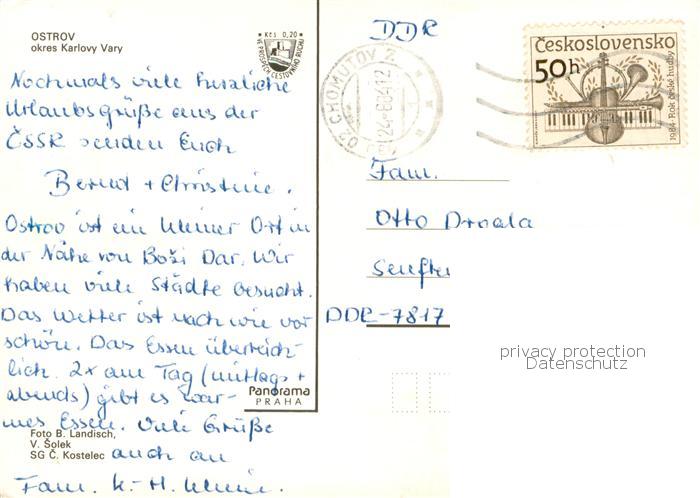 OSTROV
okres Karlovy Vary
Kčs 0,20
VE PROSPĚCH CESTOVNÍHO RUCHU
Nochmals viele herzliche
Urlaubsgrüße aus der
ČSSR senden Euch
Bernd + Christine.
Ostrov ist ein kleiner Ort in
der Nähe von Boži Dar. Wir
haben viele Städte besucht.
Das Wetter ist nach wie vor
schön. Das Essen überreich-
lich. 2x am Tag (mittags +
abends) gibt es war-
mes Essen. Viele Grüße
auch an
Fam. K.-H. Kleinie.
Foto B. Landisch,
V. Šolek
SG Č. Kostelec
Panorama
PRAHA
DDR
CHOMUTOV 2
Československo
50h
1984-Rok české hudby
Fam.
Otto Droala
Senfte
DDR-7817
privacy protection
Datenschutz